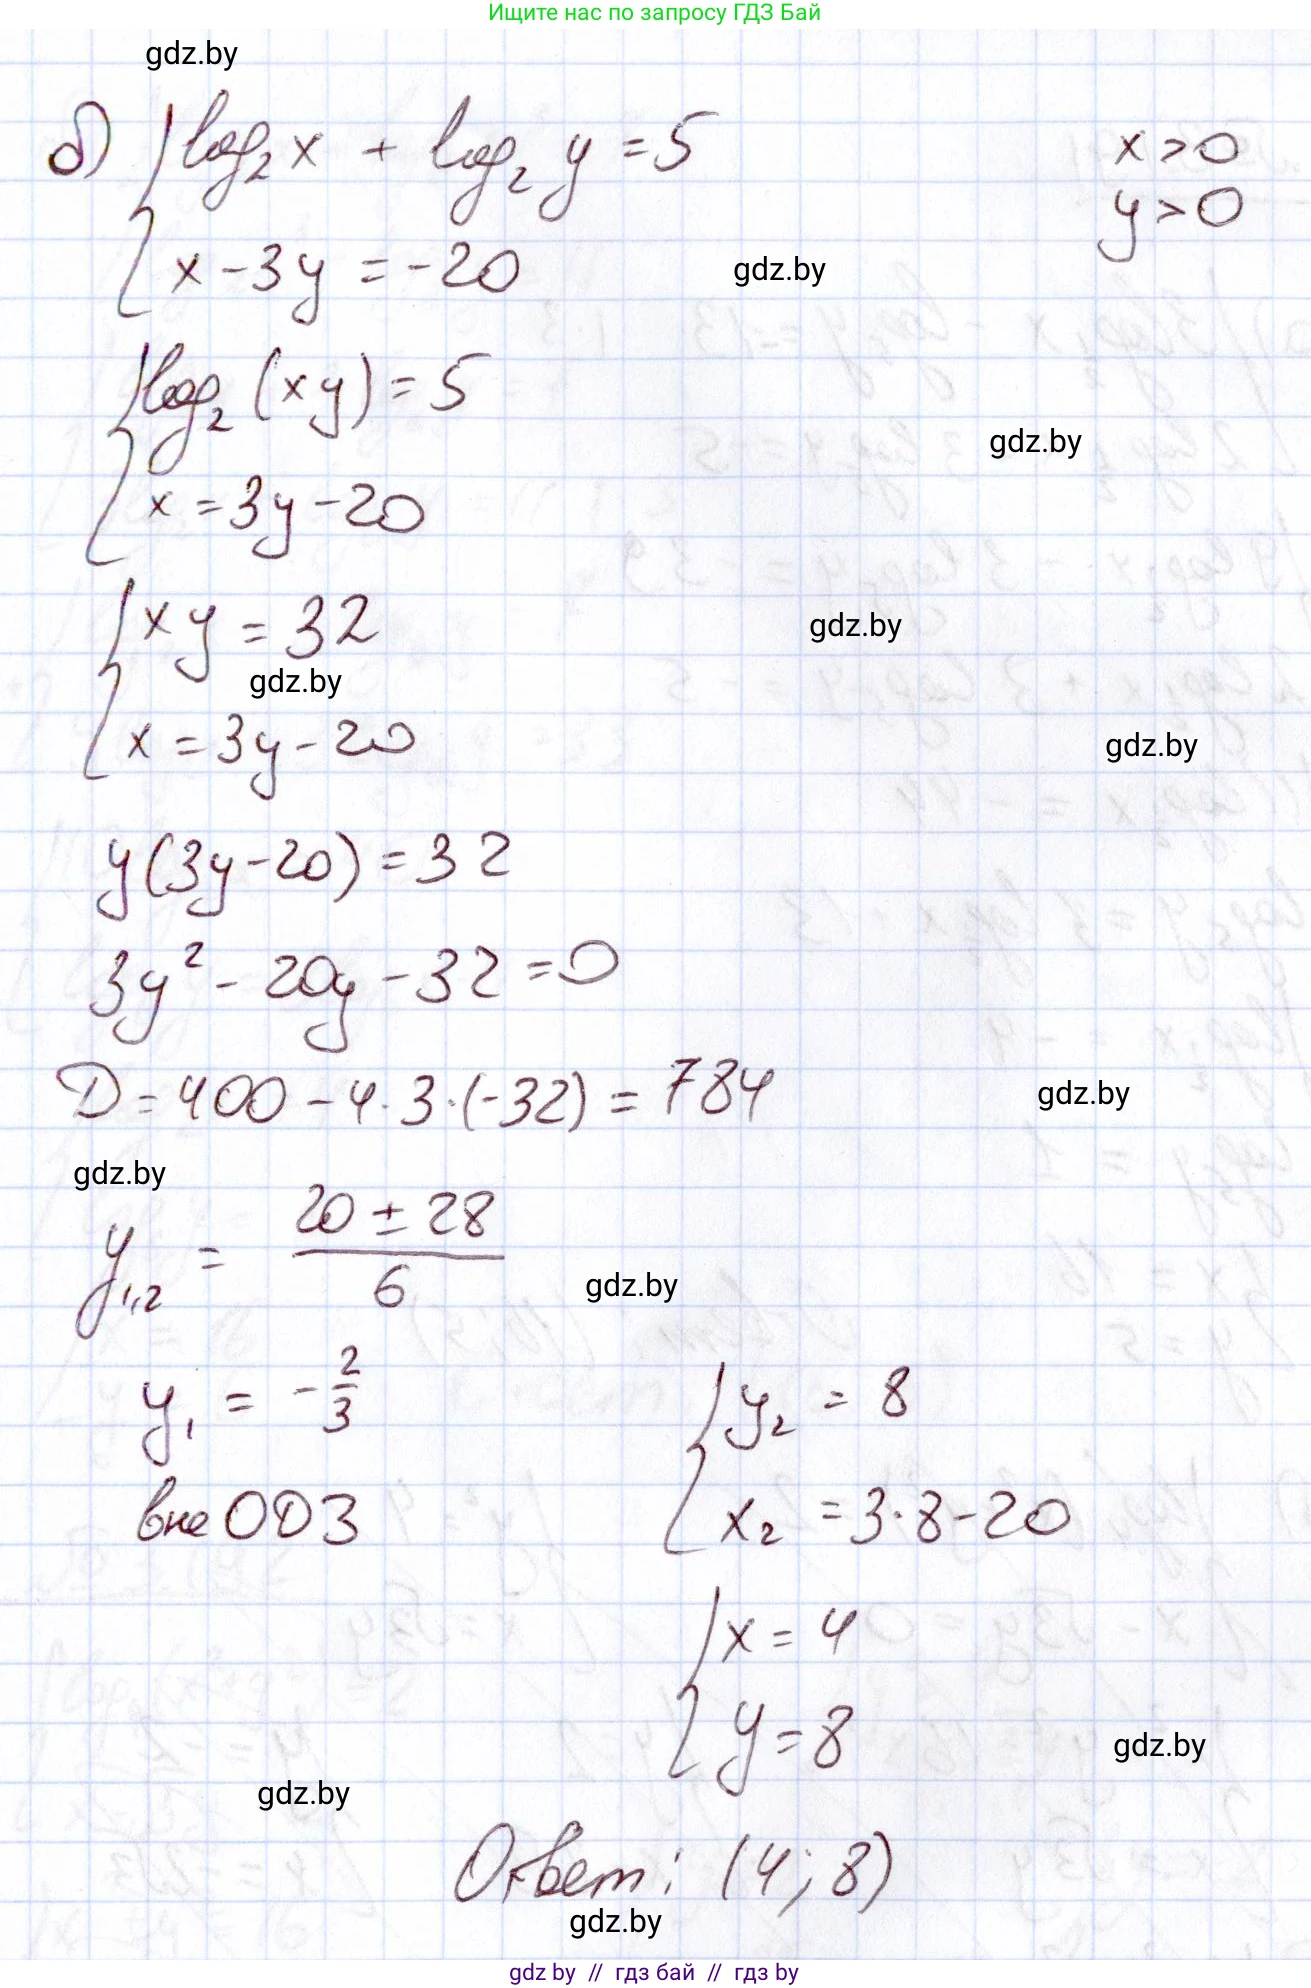 Ищите нас по запросу ГДЗ Бай
gdz.by
б) { log₂ x + log₂ y = 5
x > 0
y > 0
x - 3y = -20
gdz.by
{ log₂ (xy) = 5
gdz.by
x = 3y - 20
{ xy = 32
gdz.by
gdz.by
x = 3y - 20
gdz.by
y(3y - 20) = 32
3y² - 20y - 32 = 0
D = 400 - 4·3·(-32) = 784
gdz.by
gdz.by
y₁,₂ = (20 ± 28)/6
gdz.by
y₁ = -2/3
{ y₂ = 8
вне ОДЗ
x₂ = 3·8 - 20
{ x = 4
y = 8
gdz.by
gdz.by
Ответ: (4; 8)
gdz.by
gdz by // гдз бай // гдз by